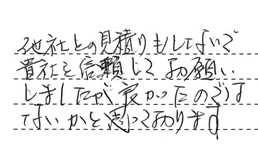 他社との見積りもしないで
貴社を信頼してお願い
しましたが良かったのでは
ないかと思っております